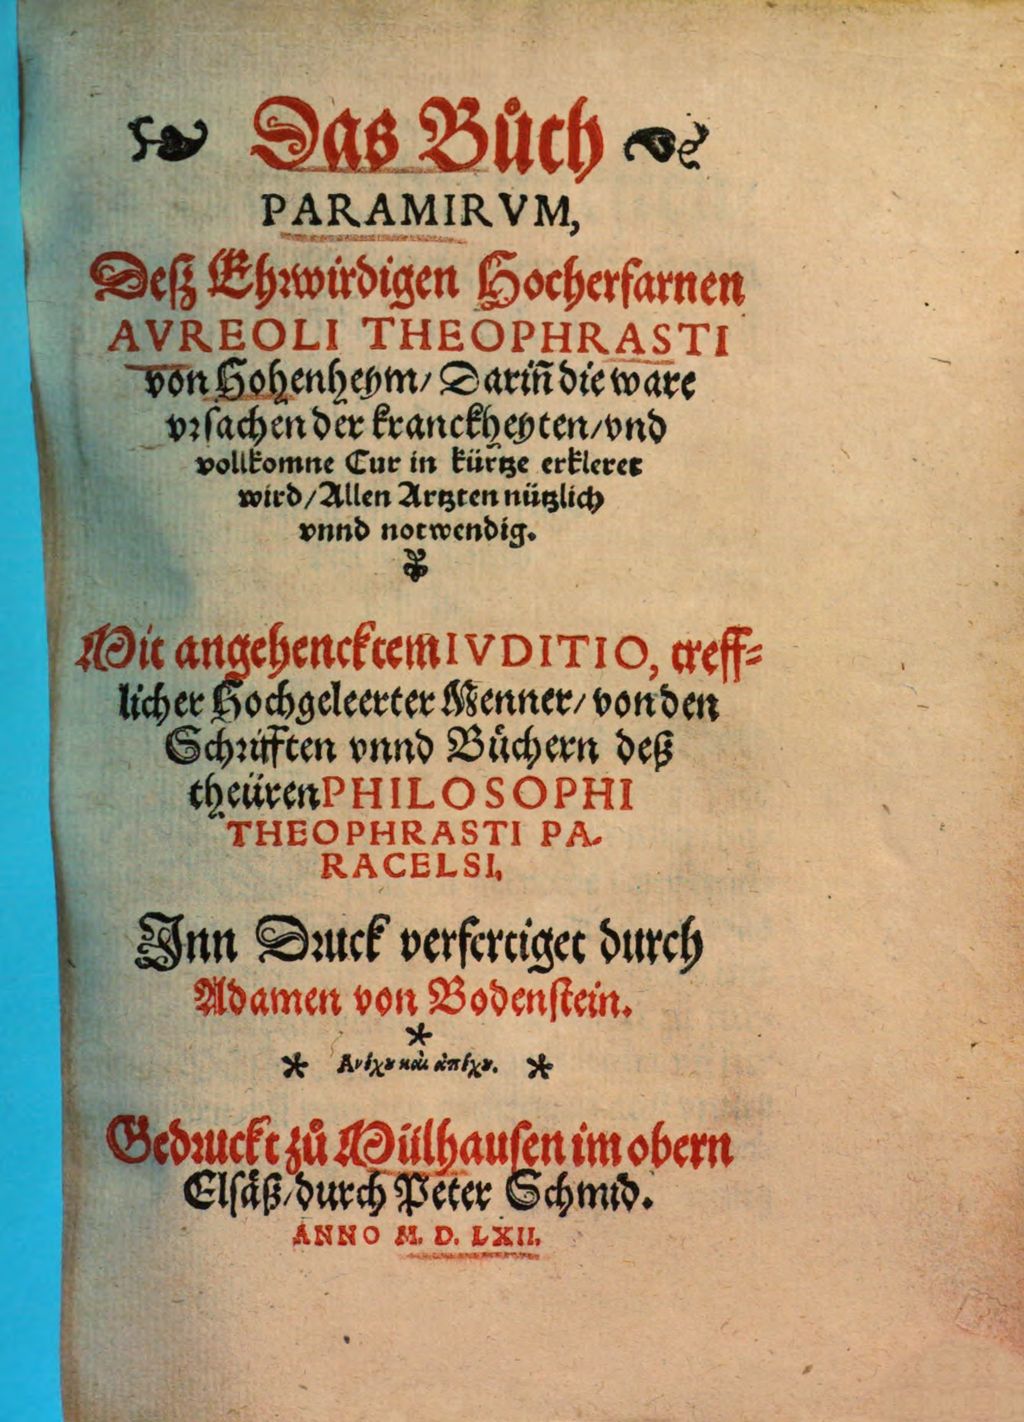 Das Bůch
PARAMIRVM,
Deß Ehrwirdigen Hocherfarnen
AVREOLI THEOPHRASTI
von Hohenheym/ Dariñ die ware
vrsachen der kranckheyten/vnd
vollkomne Cur in kürtze erkleret
wird/Allen Artzten nützlich
vnnd notwendig.
Mit angehencktem IVDITIO, treff⸗
licher Hochgeleerter Menner/ von den
Schrifften vnnd Bůchern deß
theüren PHILOSOPHI
THEOPHRASTI PA-
RACELSI,
Inn Druck verfertiget durch
Adamen von Bodenstein.
Ανέχου καὶ ἀπέχου.
Gedruckt zů Mülhausen im obern
Elsäß/durch Peter Schmid.
ANNO M. D. LXII.